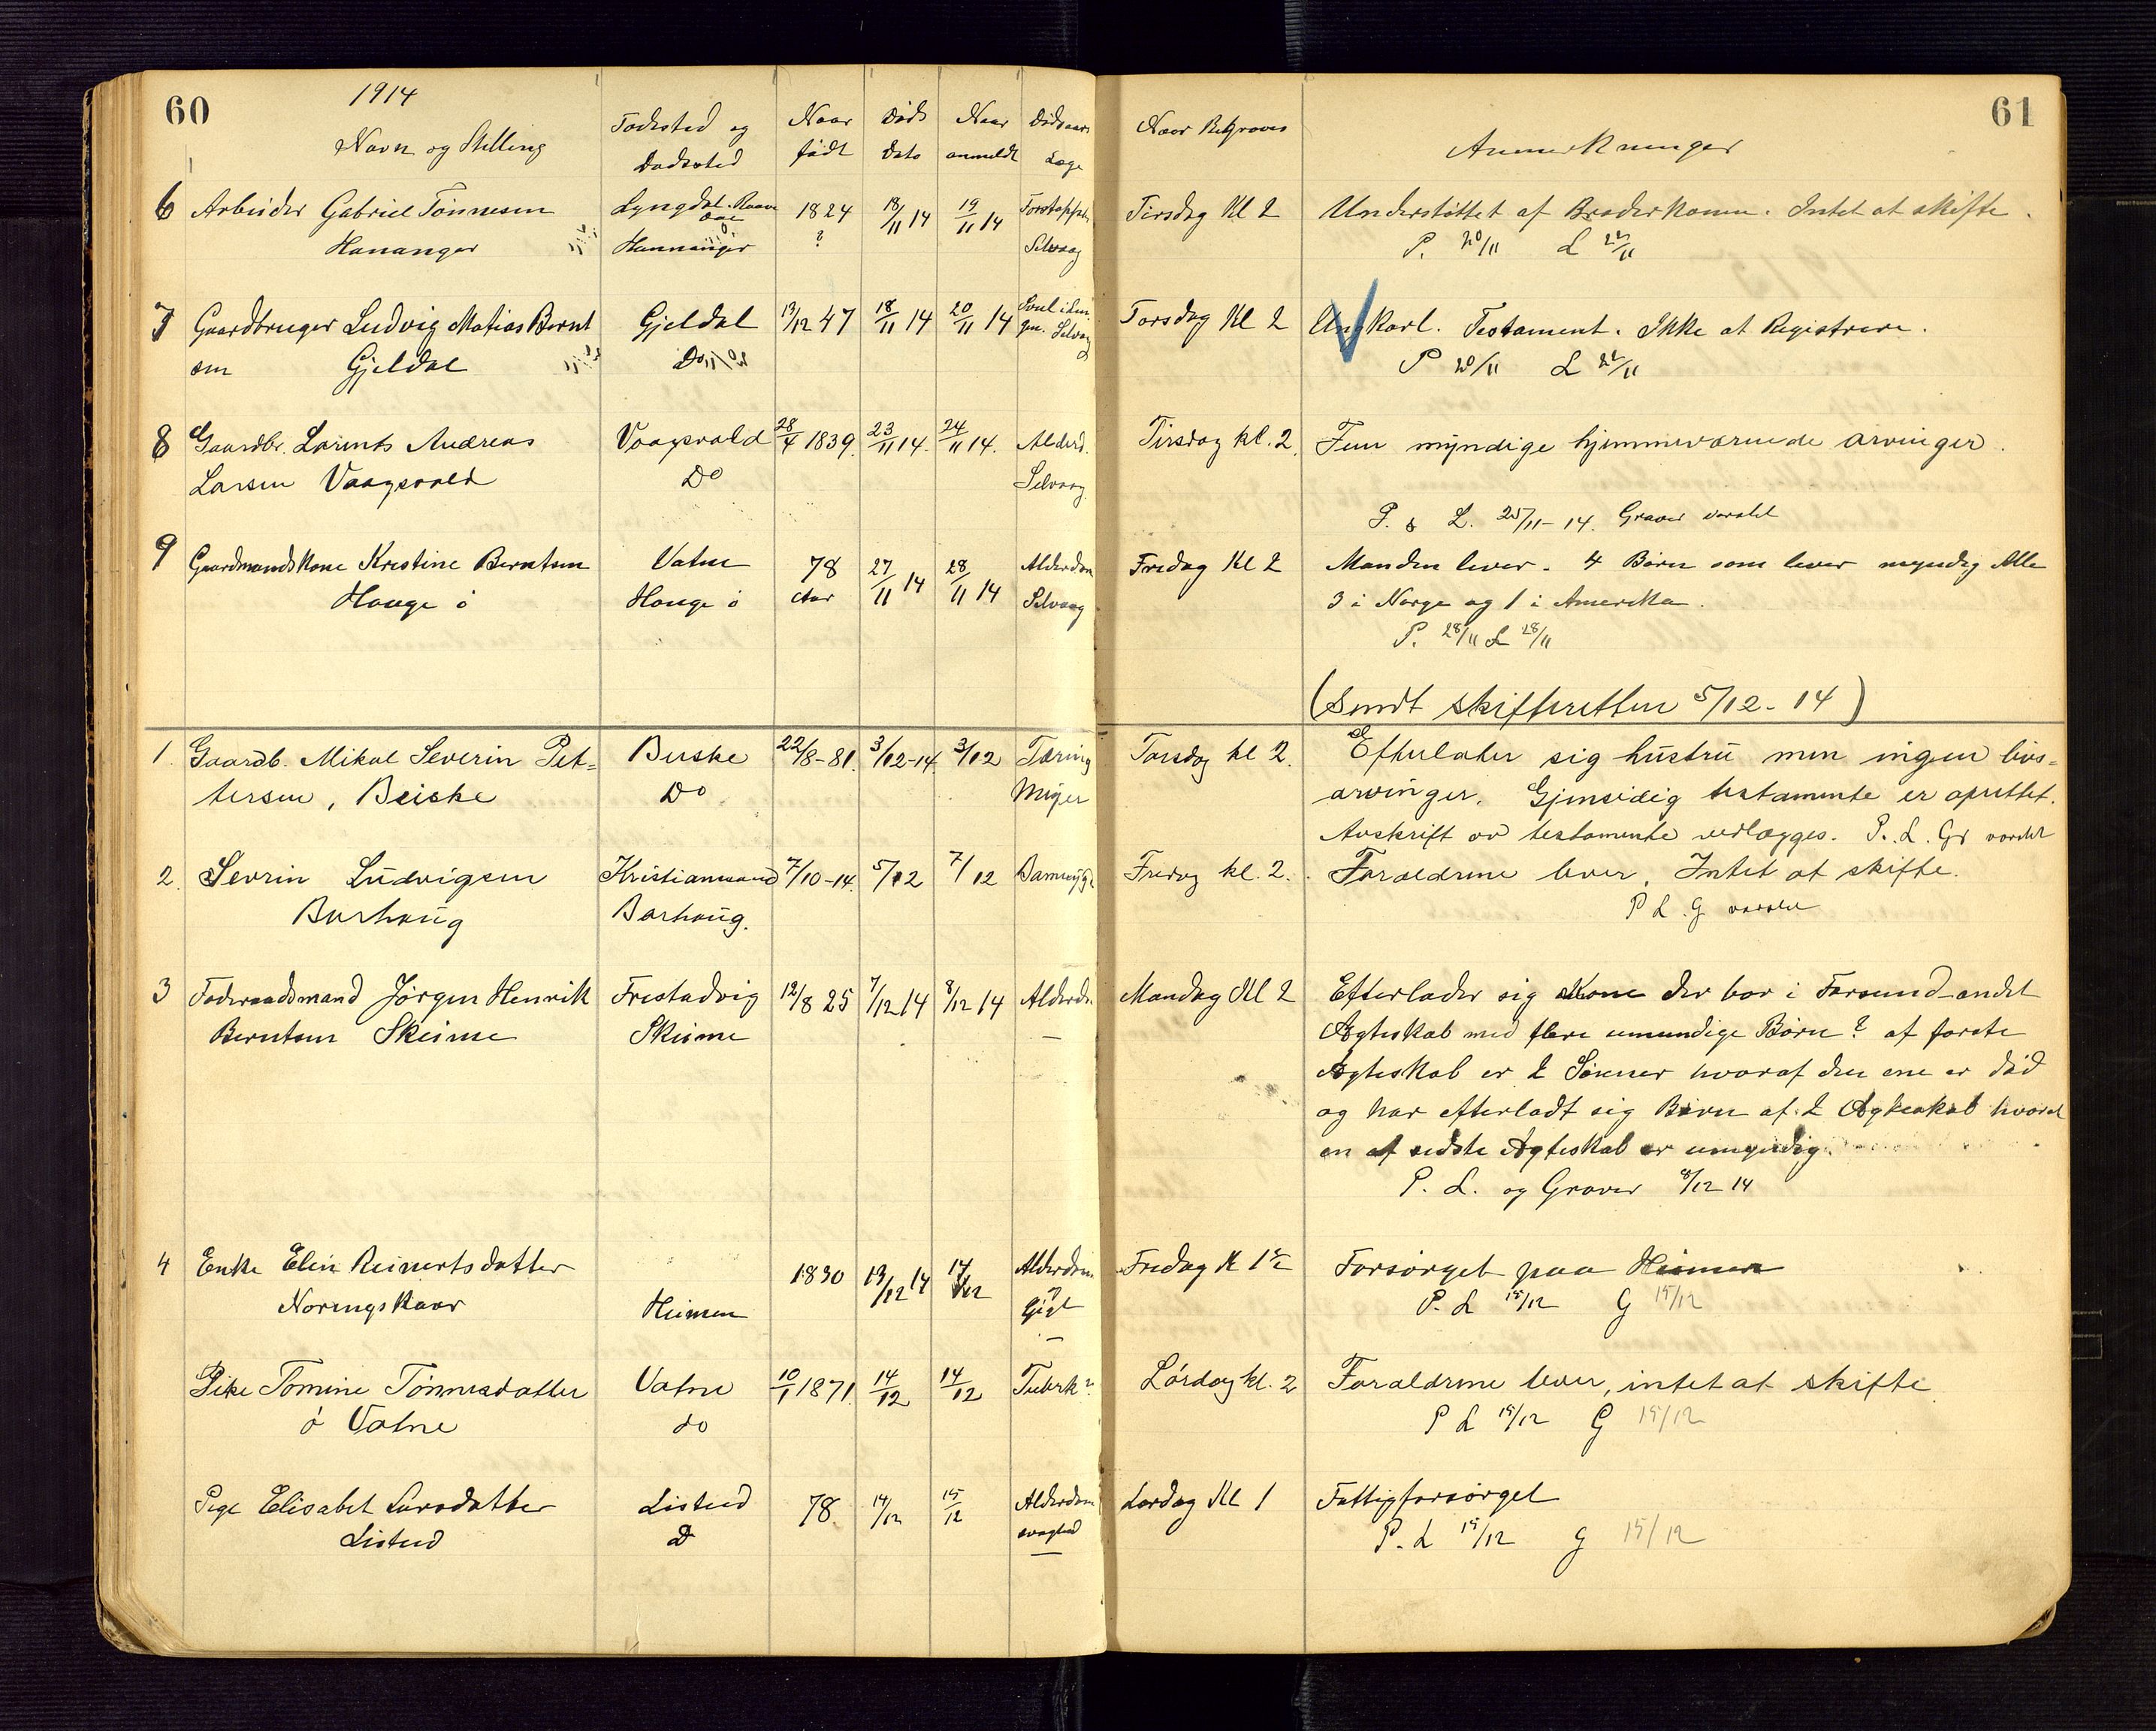 60
1914
Navn og Stilling
Fødested og Dødssted
Naar født
Døds Dato
Naar anmeldt
Dødsaars Læge
Naar Begraves
Anmerkninger
61
6 Arbeider Gabriel Tønnesen Lyngdal 1824 18/11 14 19/11 14 Tirsdag Kl 2 Understøttet af Broderkonen. Intet at skifte.
Hananger Hannanger ? Selvaag P. 20/11 L 22/11
7 Gaardbruger Ludvig Matias Bernt Gjeldal 19/12 47 18/11 14 20/11 14 Torsdag Kl 2 Ungkarl. Testament. Ikke at Registrere.
sen Gjeldal Do Selvaag P 20/11 L 22/11
8 Gaardbr. Larents Andreas Vaagsvold 28/4 1839. 23/11 14. 24/11 14. Alderd. Tirsdag kl. 2. Fem myndige hjemmeværende arvinger.
Larsen Vaagsvold Do Selvaag
P. & L. 25/11-14. Graver varslet
9 Gaardmandskone Kristine Berntsen Vatne 78 27/11 14 28/11 14 Alderdom Fredag Kl 2 Manden lever. 4 Børn som lever myndig Alle
Hauge ö Hauge ö Aar Selvaag 3 i Norge og 1 i Amerika.
P. 28/11 L 28/11
(Sendt skifteretten 5/12-14)
1. Gaardb. Mikal Severin Pet= Beiske 22/8-81. 3/12-14 3/12 Tæring Torsdag kl 2. Efterlater sig hustru men ingen livs=
tersen, Beiske Do Meyer arvinger. Gjensidig testamente er oprettet.
Avskrift av testamente vedlægges. P. L. Gr varslet
2. Sevrin Ludvigsen Kristiansand 7/10-14. 5/12 7/12 Fredag kl. 2. Foraeldrene lever. Intet at skifte.
Borhaug Borhaug. P L. G varslet
3 Føderaadsmand Jørgen Henrik Frestadvig 12/8 25 7/12 14 8/12 14 Alderdo Mandag Kl 2 Efterlader sig Kone der bor i Farsund andet
Berntsen Skeime Skeime Ægteskab med flere umundige Børn? af første
Ægteskab er 2 Sønner hvoraf den ene er død
og har efterladt sig Børn af 2 Ægteskab hvoraf
en af sidste Ægteskab er umyndig.
P. L. og Graver 8/12 14
4 Enke Elin Reinertsdatter 1830 13/12 14 14/12 Alderdom Fredag K 1½ Forsørget paa Heimen
Noringskaar Heimen Gigt P. L 15/12 G 15/12
Pike Tomine Tønnesdatter Vatne 10/1 1871. 14/12 14/12 Tuberk? Lørdag kl. 2 Foraeldrene lever, intet at skifte
ö Vatne do P L 15/12 G 15/12
Pige Elisabet Larsdatter Listeid 78 14/12 15/12 Alderdom Lørdag Kl 1 Fattigforsørget
Listeid D svaghed P. L 15/12 G 15/12